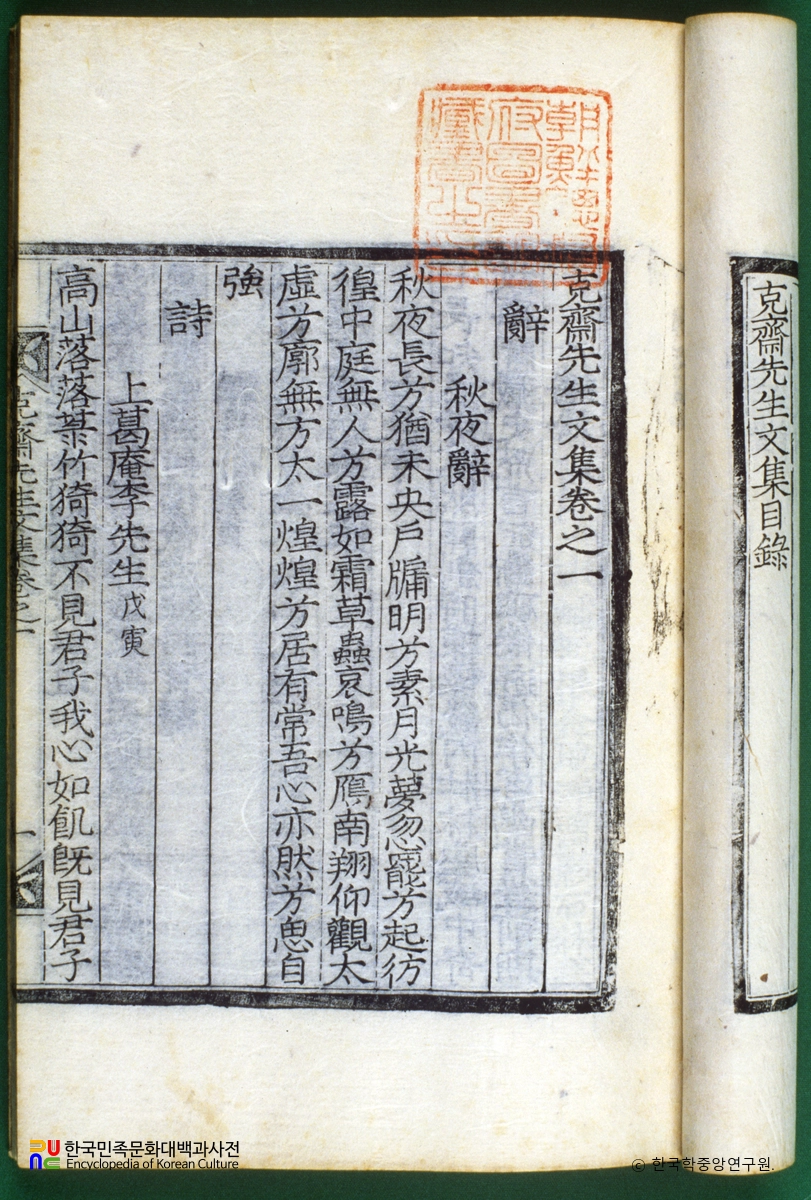 克齋先生文集目錄
朝鮮總督
府圖書館
藏書之印
克齋先生文集卷之一
辭
秋夜辭
秋夜長兮猶未央戶牖明兮素月光夢忽罷兮起彷
徨中庭無人兮露如霜草蟲哀鳴兮鴈南翔仰觀太
虛兮廓無方太一煌煌兮居有常吾心亦然兮恖自
強
詩
上葛庵李先生 戊寅
高山落落菉竹猗猗不見君子我心如飢旣見君子
克齋先生文集卷之一
一
한국민족문화대백과사전
Encyclopedia of Korean Culture
© 한국학중앙연구원.